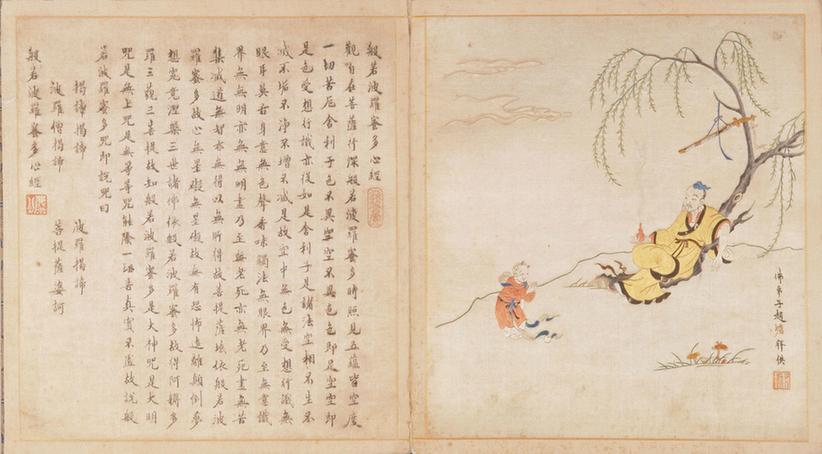 般若波羅蜜多心經
觀自在菩薩行深般若波羅蜜多時照見五蘊皆空度
一切苦厄舍利子色不異空空不異色色即是空空即
是色受想行識亦復如是舍利子是諸法空相不生不
滅不垢不淨不增不減是故空中無色無受想行識無
眼耳鼻舌身意無色聲香味觸法無眼界乃至無意識
界無無明亦無無明盡乃至無老死亦無老死盡無苦
集滅道無智亦無得以無所得故菩提薩埵依般若波
羅蜜多故心無罣礙無罣礙故無有恐怖遠離顛倒夢
想究竟涅槃三世諸佛依般若波羅蜜多故得阿耨多
羅三藐三菩提故知般若波羅蜜多是大神咒是大明
咒是無上咒是無等等咒能除一切苦真實不虛故說般
若波羅蜜多咒即說咒曰
揭諦揭諦 波羅揭諦
波羅僧揭諦 菩提薩婆訶
般若波羅蜜多心經
佛弟子趙
供